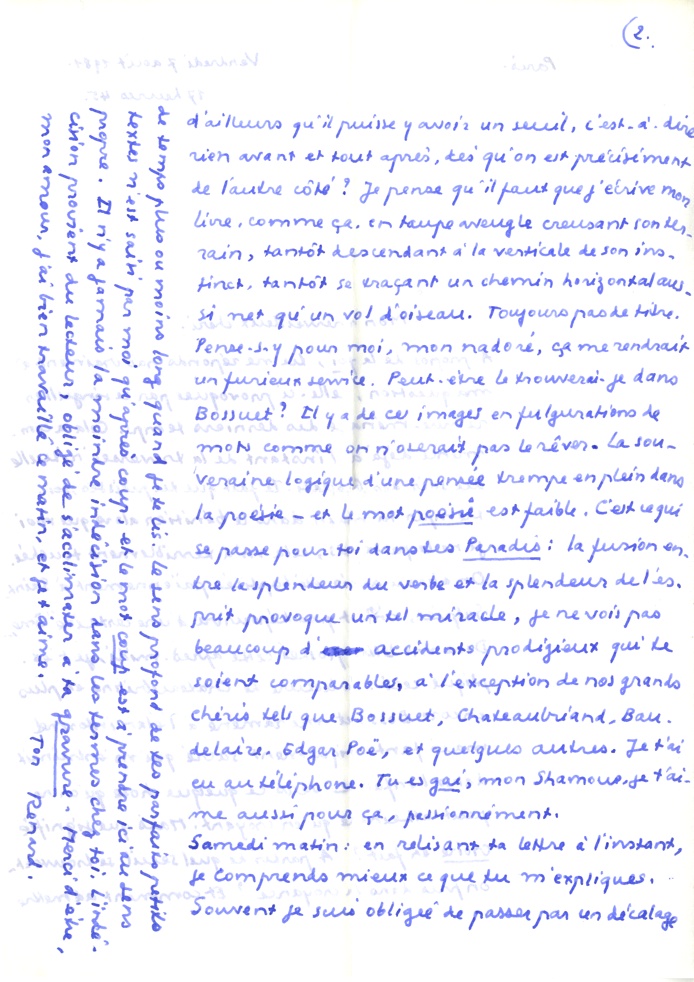 (2.
d'ailleurs qu'il puisse y avoir un seuil, c'est-à-dire
rien avant et tout après, dès qu'on est précisément
de l'autre côté ? Je pense qu'il faut que j'écrive mon
livre, comme ça, en taupe aveugle creusant son ter-
rain, tantôt descendant à la verticale de son ins-
tinct, tantôt se traçant un chemin horizontal aus-
si net qu'un vol d'oiseau. Toujours pas de titre.
Pense-s-y pour moi, mon nadoré, ça me rendrait
un furieux service. Peut-être le trouverai-je dans
Bossuet ? Il y a de ces images en fulgurations de
mots comme on n'oserait pas le rêver. La sou-
veraine logique d'une pensée trempe en plein dans
la poésie – et le mot poésie est faible. C'est ce qui
se passe pour toi dans tes Paradis : la fusion en-
tre la splendeur du verbe et la splendeur de l'es-
prit provoque un tel miracle, je ne vois pas
beaucoup d' accidents prodigieux qui te
soient comparables, à l'exception de nos grands
chéris tels que Bossuet, Chateaubriand, Bau-
delaire, Edgar Poë, et quelques autres. Je t'ai
eu au téléphone. Tu es gai, mon Shamour, je t'ai-
me aussi pour ça, passionnément.
Samedi matin : en relisant ta lettre à l'instant,
je comprends mieux ce que tu m'expliques.
Souvent je suis obligée de passer par un décalage
de temps plus ou moins long quand je te lis : le sens profond de tes parfaits petits
textes n'est saisi par moi qu'après coup, et le mot coup est à prendre ici au sens
propre. Il n'y a jamais la moindre indécision dans les termes chez toi. L'indé-
cision provient du lecteur, obligé de s'acclimater à ta gravure. Merci d'être,
mon amour, j'ai bien travaillé ce matin, et je t'aime. Ton Renard.